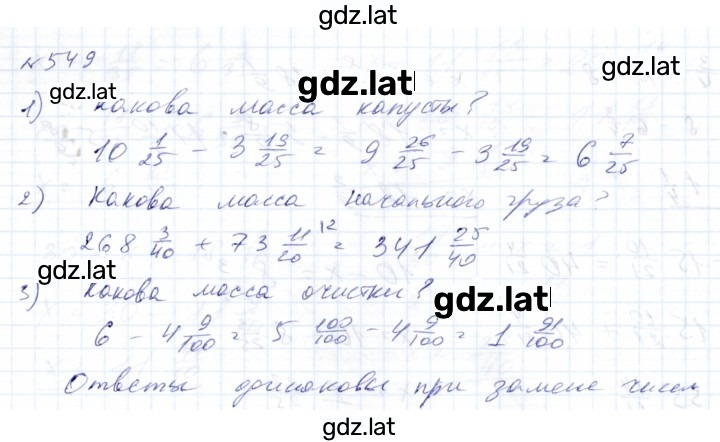 gdz.lat
№549
gdz.lat
gdz.lat
1) Какова масса капусты?
10 1/25 - 3 19/25 = 9 26/25 - 3 19/25 = 6 7/25
2) Какова масса начального груза?
268 3/40 + 73 11/20 12 = 341 25/40
gdz.lat
3) Какова масса очистки?
gdz.lat
6 - 4 9/100 = 5 100/100 - 4 9/100 = 1 91/100
Ответы одинаковы при замене чисел
gdz.lat